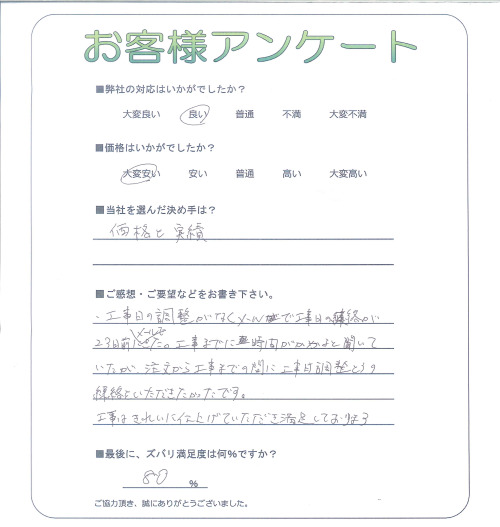 お客様アンケート
■弊社の対応はいかがでしたか？
大変良い 良い 普通 不満 大変不満
■価格はいかがでしたか？
大変安い 安い 普通 高い 大変高い
■当社を選んだ決め手は？
価格と実績
■ご感想・ご要望などをお書き下さい。
・工事日の調整がなくメールで工事日の連絡が
メールで
2、3日前にきた。工事までに時間がかかると聞いて
いたが、注文から工事までの間に工事日調整どうの
連絡をいただきたかったです。
工事はきれいに仕上げていただき満足しております
■最後に、ズバリ満足度は何%ですか？
80 %
ご協力頂き、誠にありがとうございました。